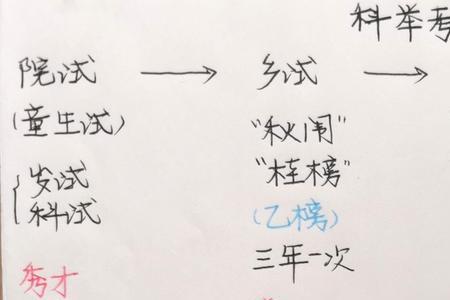 科举考
院试 → 乡试 →
(童生试)
岁试
科试
秀才
"秋闱"
"桂榜"
(乙榜)
三年一次